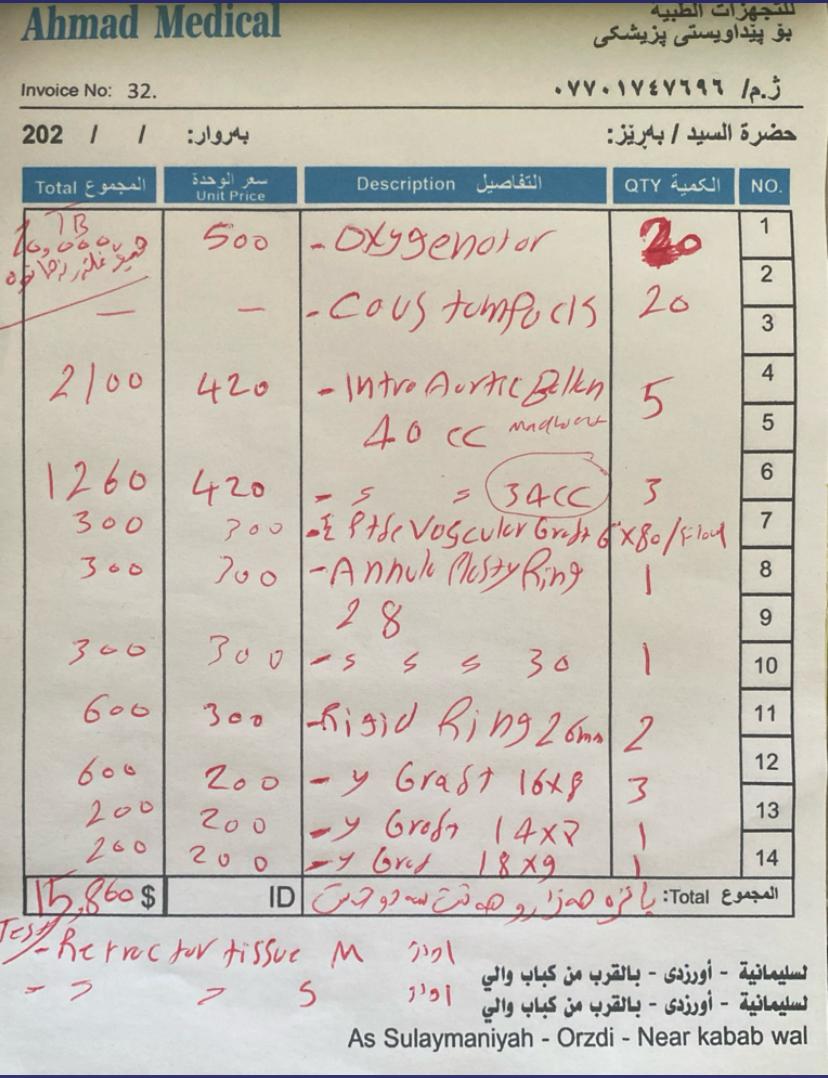 للتجهزات الطبيه
Ahmad Medical
بۆ پێداویستی پزیشکی
Invoice No: 32.
ژ.م/ ٠٧٧٠١٧٤٧٦٩٦
202 / / بەروار:
حضرة السيد / بەڕێز:
Total المجموع سعر الوحدة Unit Price Description التفاصيل QTY الكمية NO.
500 - Oxygenotor 20 1
2
— — - 20 3
2100 420 - Intra Aurtic 5 4
40 cc 5
1260 420 - s = 34CC 3 6
300 300 Ptfe Voscular Graft 6*80 7
300 300 - Annulo Plasty Ring 1 8
28 9
300 300 - s s s 30 1 10
600 300 - Rigid Ring 26mm 2 11
12
600 200 - y Graft 16x8 3
200 200 - y Groft 14x7 1 13
200 200 - y Graf 18x9 1 14
15,860 $ ID المجموع Total:
- Retractor tissue M
S
لسليمانية - أورزدى - بالقرب من كباب والي
لسليمانية - أورزدى - بالقرب من كباب والي
As Sulaymaniyah - Orzdi - Near kabab wal